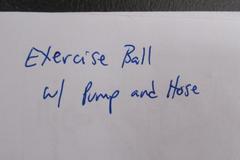 Exercise Ball
w/ Pump and Hose